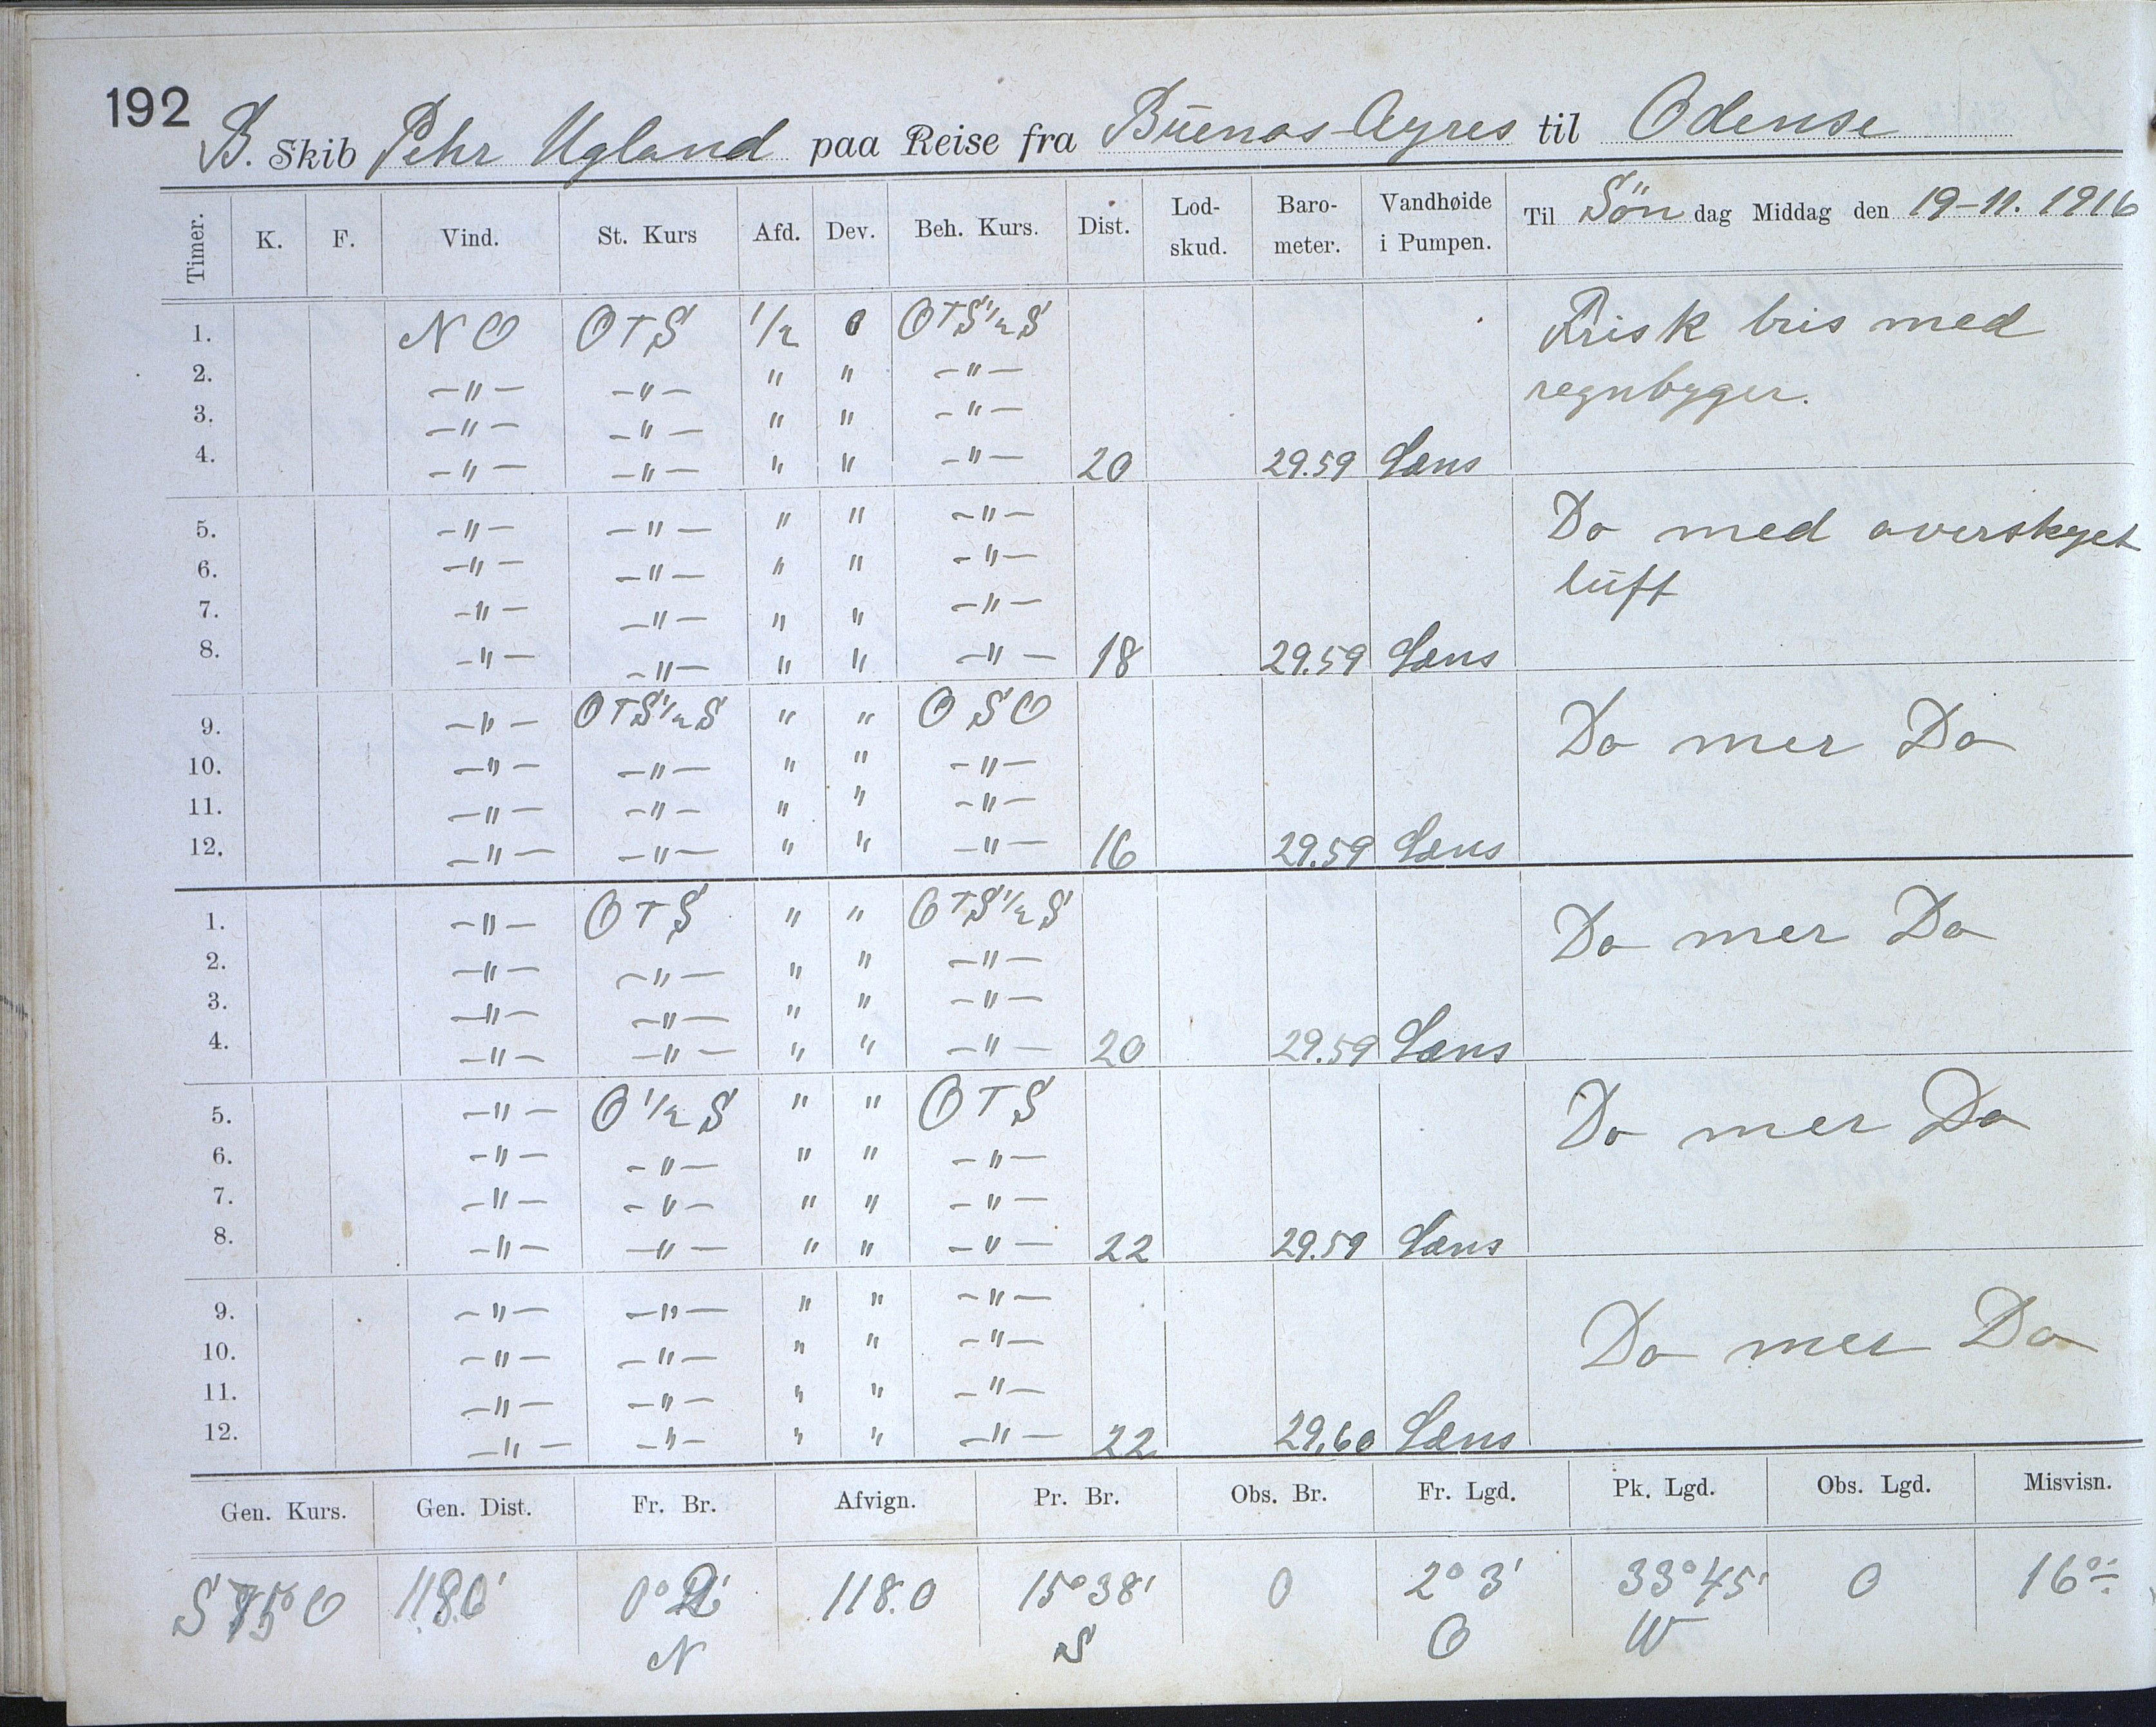 192
B. Skib Pehr Ugland paa Reise fra Buenos-Ayres til Odense
Timer. K. F. Vind. St. Kurs Afd. Dev. Beh. Kurs. Dist. Lod-skud. Baro-meter. Vandhøide i Pumpen. Til Søn dag Middag den 19-11. 1916
1. NO OTS 1/2 0 OTS1/2S Frisk bris med
2. -"- -"- " " -"- regnbyger.
3. -"- -"- " " -"-
4. -"- -"- " " -"- 20 29.59 Læns
5. -"- -"- " " -"- Do med overskyet
6. -"- -"- " " -"- luft
7. -"- -"- " " -"-
8. -"- -"- " " -"- 18 29.59 Læns
9. -"- OTS1/2S " " OSO Do mer Do
10. -"- -"- " " -"-
11. -"- -"- " " -"-
12. -"- -"- " " -"- 16 29.59 Læns
1. -"- OTS " " OTS1/2S Do mer Do
2. -"- -"- " " -"-
3. -"- -"- " " -"-
4. -"- -"- " " -"- 20 29.59 Læns
5. -"- O1/2S " " OTS Do mer Do
6. -"- -"- " " -"-
7. -"- -"- " " -"-
8. -"- -"- " " -"- 22 29.59 Læns
9. -"- -"- " " -"- Do mer Do
10. -"- -"- " " -"-
11. -"- -"- " " -"-
12. -"- -"- " " -"- 22 29.60 Læns
Gen. Kurs. Gen. Dist. Fr. Br. Afvign. Pr. Br. Obs. Br. Fr. Lgd. Pk. Lgd. Obs. Lgd. Misvisn.
118.0 15°38' 0 2°3' 33°45' 0 16°
N S O W